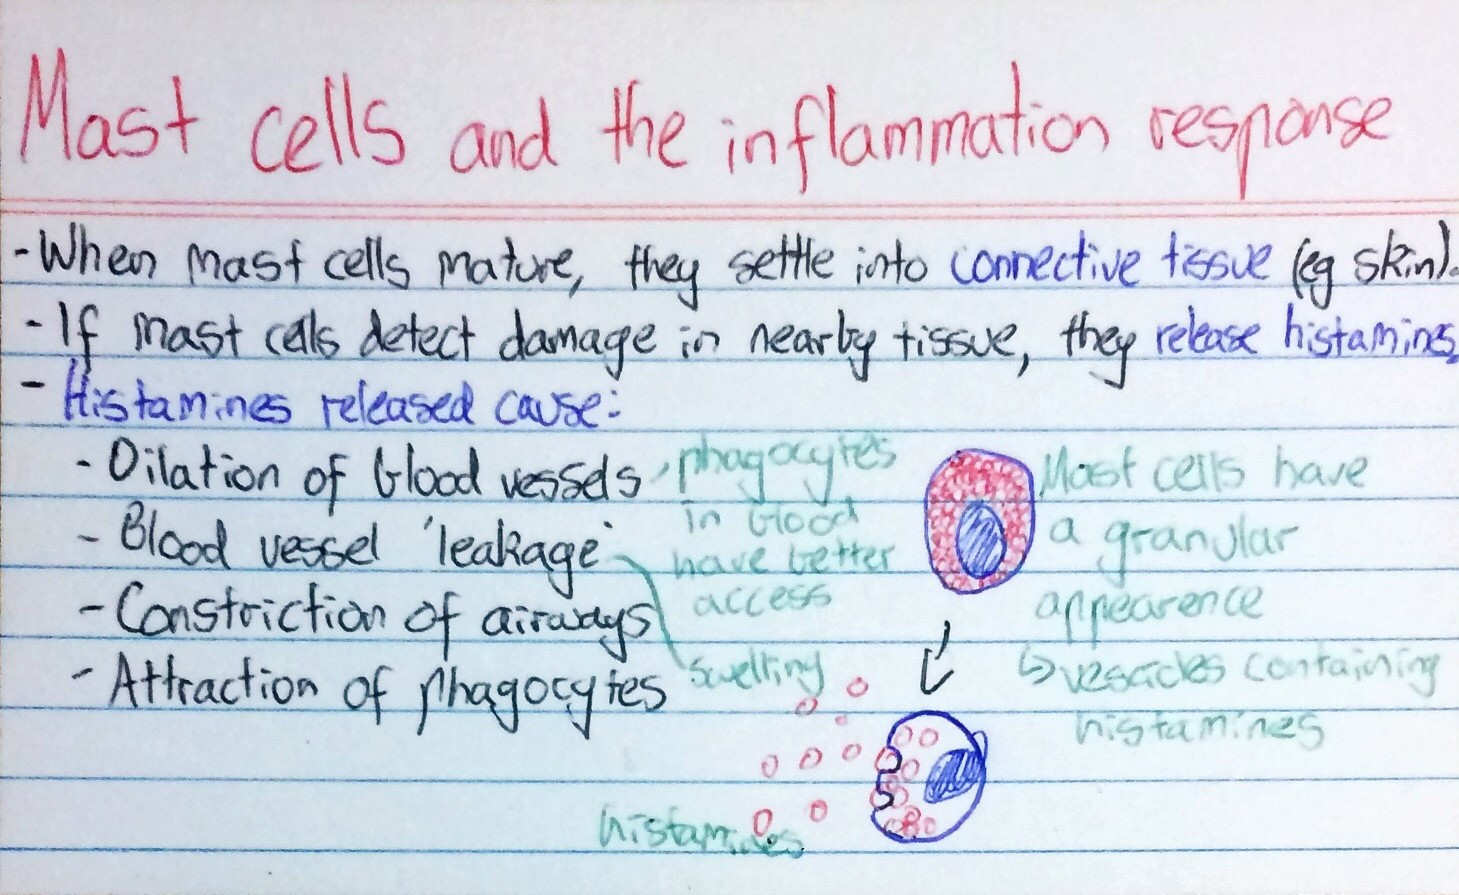 Mast cells and the inflammation response
- When mast cells mature, they settle into connective tissue (eg skin).
- If mast cells detect damage in nearby tissue, they release histamines.
- Histamines released cause:
- Dilation of blood vessels
- Blood vessel 'leakage'
- Constriction of airways
- Attraction of phagocytes
phagocytes
in blood
have better
access
swelling
Mast cells have
a granular
appearence
↳ vesacles containing
histamines
histamines